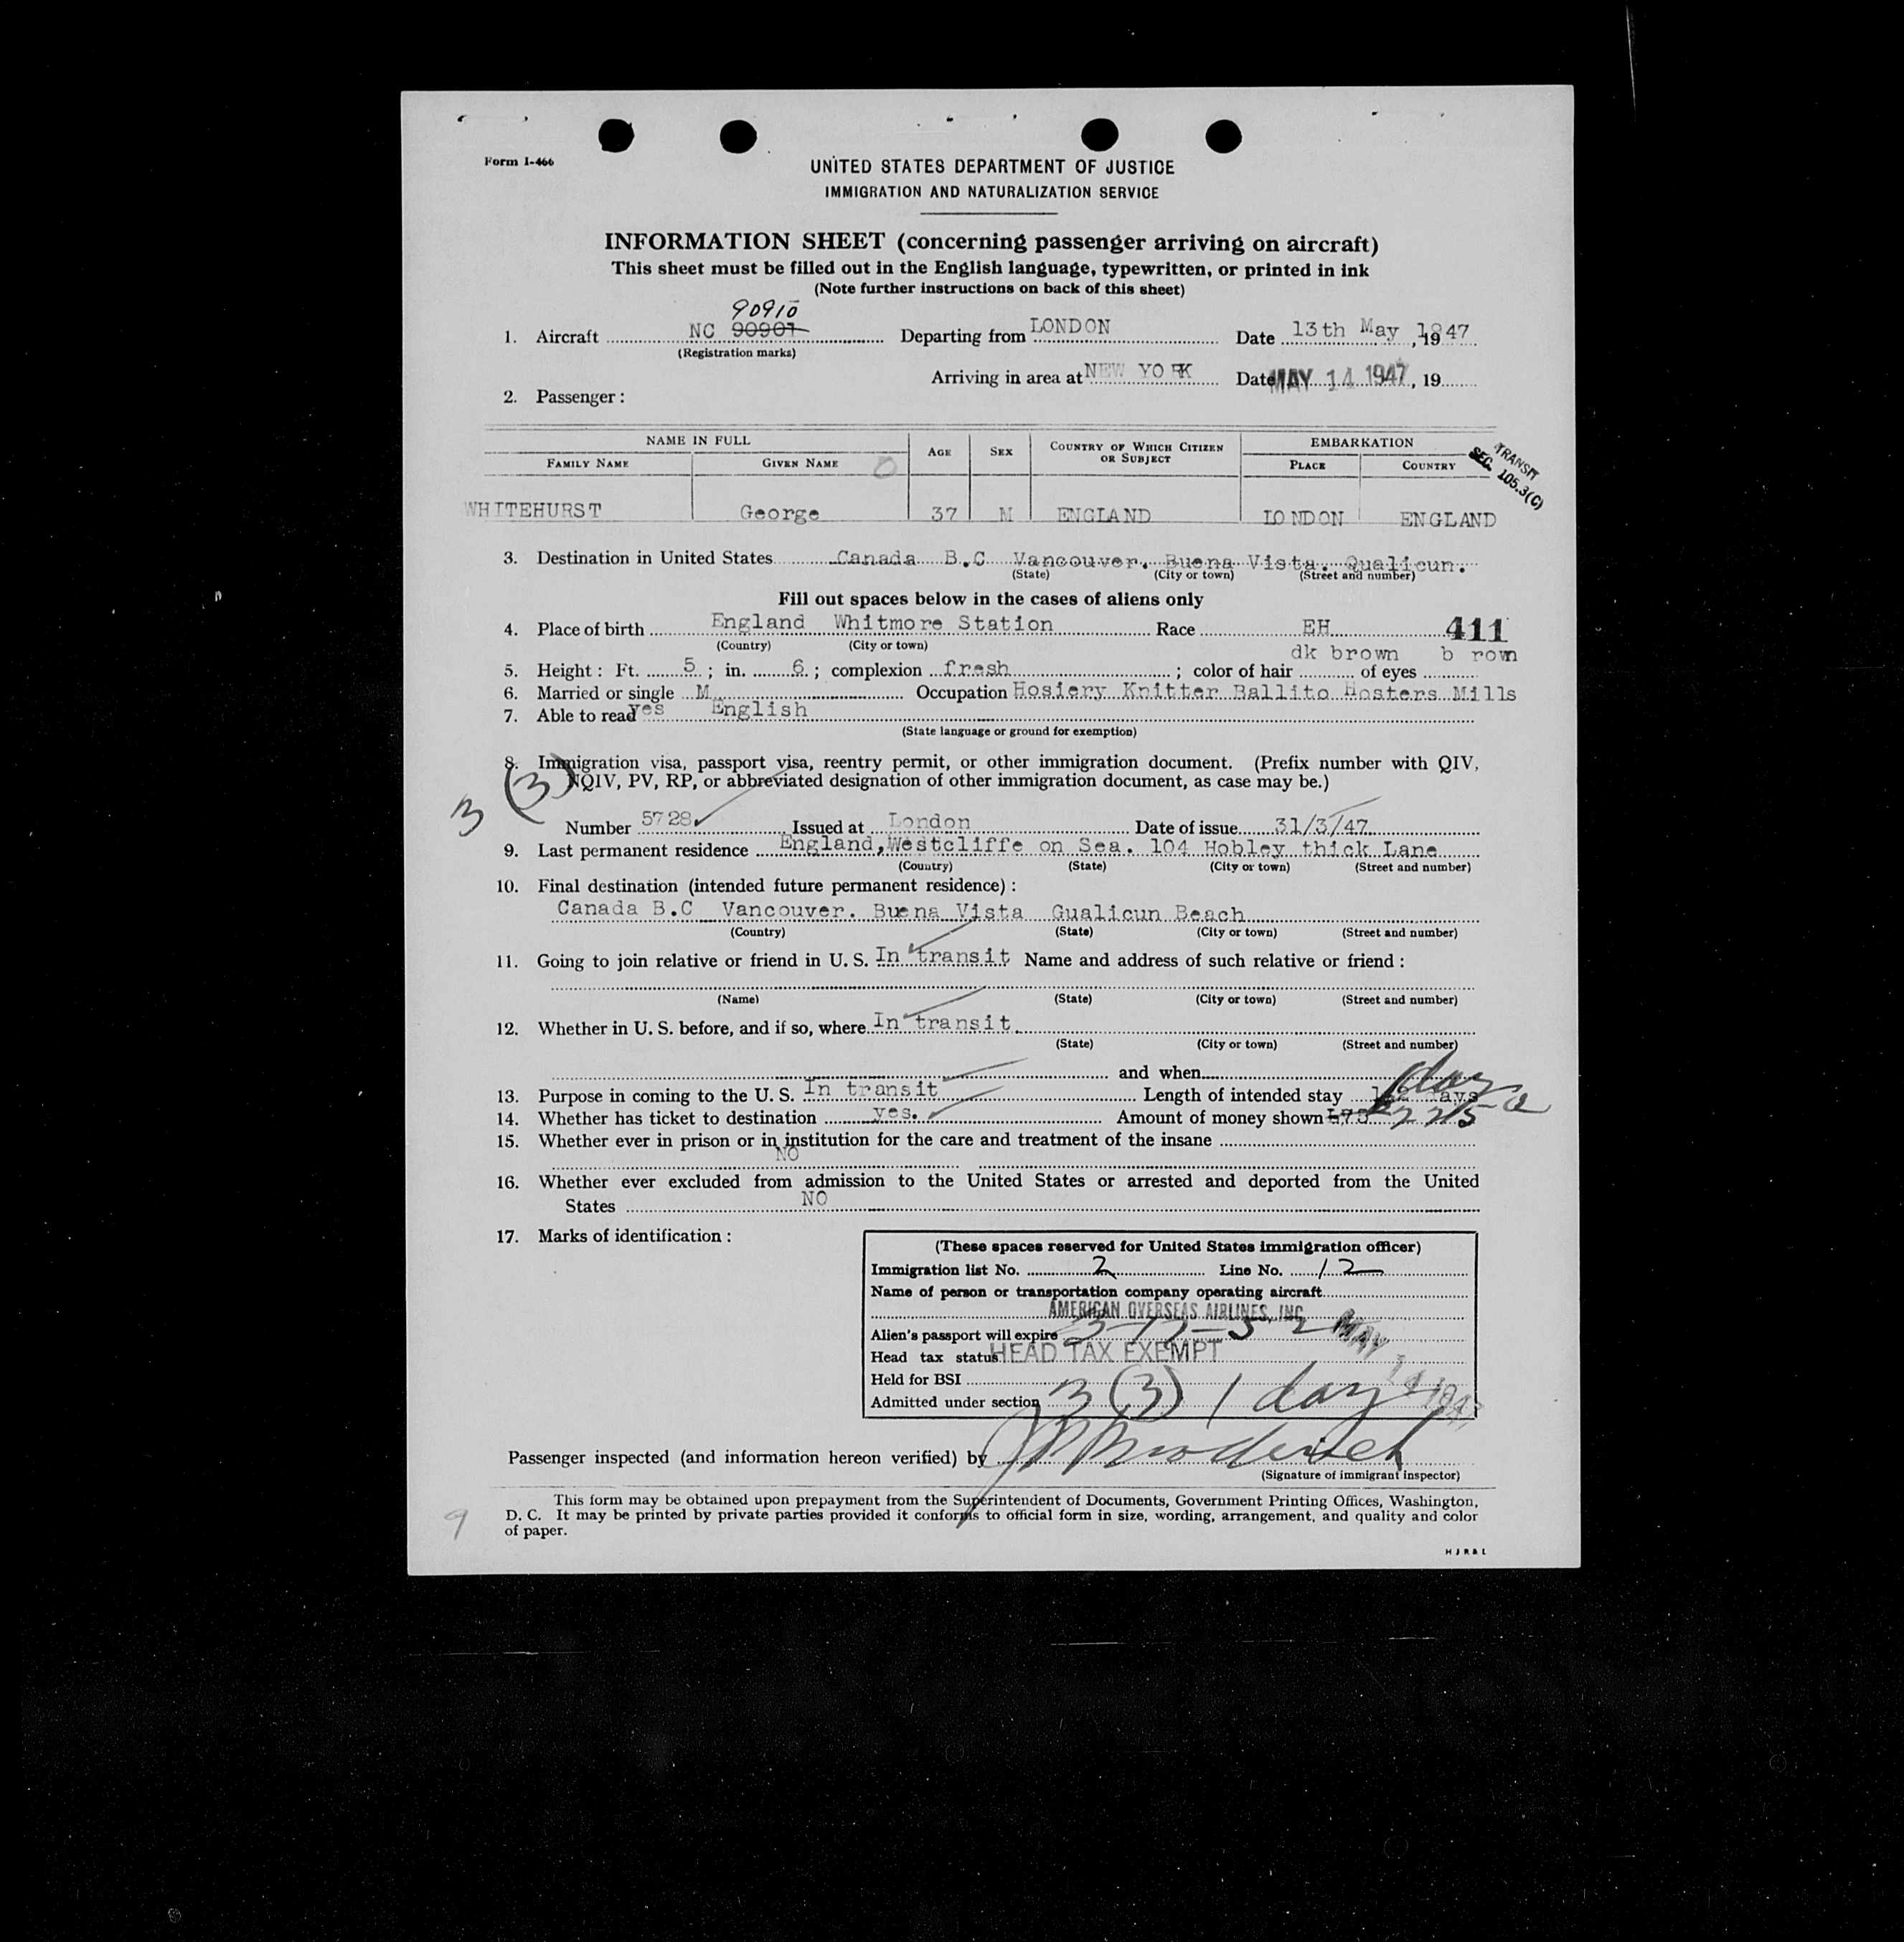 Form I-466
UNITED STATES DEPARTMENT OF JUSTICE
IMMIGRATION AND NATURALIZATION SERVICE
INFORMATION SHEET (concerning passenger arriving on aircraft)
This sheet must be filled out in the English language, typewritten, or printed in ink
(Note further instructions on back of this sheet)
90910
1. Aircraft NC 90901 Departing from LONDON Date 13th May, 1947
(Registration marks)
Arriving in area at NEW YORK Date MAY 14 1947, 19
2. Passenger:
NAME IN FULL AGE SEX COUNTRY OF WHICH CITIZEN OR SUBJECT EMBARKATION
FAMILY NAME GIVEN NAME PLACE COUNTRY
TRANSIT
SEC. 105.3(C)
WHITEHURST George 37 M ENGLAND LONDON ENGLAND
3. Destination in United States Canada B.C Vancouver. Buena Vista. Qualicun.
(State) (City or town) (Street and number)
Fill out spaces below in the cases of aliens only
4. Place of birth England Whitmore Station Race EH 411
(Country) (City or town)
dk brown b rown
5. Height: Ft. 5; in. 6; complexion fresh; color of hair of eyes
6. Married or single M Occupation Hosiery Knitter Ballito Hosters Mills
7. Able to read yes English
(State language or ground for exemption)
8. Immigration visa, passport visa, reentry permit, or other immigration document. (Prefix number with QIV,
NQIV, PV, RP, or abbreviated designation of other immigration document, as case may be.)
3 (3)
Number 5728 Issued at London Date of issue 31/3/47
9. Last permanent residence England, Westcliffe on Sea. 104 Hobley thick Lane
(Country) (State) (City or town) (Street and number)
10. Final destination (intended future permanent residence):
Canada B.C Vancouver. Buena Vista Gualicun Beach
(Country) (State) (City or town) (Street and number)
11. Going to join relative or friend in U. S. In transit Name and address of such relative or friend:
(Name) (State) (City or town) (Street and number)
12. Whether in U. S. before, and if so, where In transit
(State) (City or town) (Street and number)
and when
13. Purpose in coming to the U. S. In transit Length of intended stay 1 day
14. Whether has ticket to destination yes. Amount of money shown 225
15. Whether ever in prison or in institution for the care and treatment of the insane
NO
16. Whether ever excluded from admission to the United States or arrested and deported from the United
States NO
17. Marks of identification:
(These spaces reserved for United States immigration officer)
Immigration list No. 2 Line No. 12
Name of person or transportation company operating aircraft
AMERICAN OVERSEAS AIRLINES, INC
Alien's passport will expire 3-17-52 MAY 14 1947
Head tax status HEAD TAX EXEMPT
Held for BSI
Admitted under section 3 (3) 1 day
Passenger inspected (and information hereon verified) by
(Signature of immigrant inspector)
This form may be obtained upon prepayment from the Superintendent of Documents, Government Printing Offices, Washington,
D. C. It may be printed by private parties provided it conforms to official form in size, wording, arrangement, and quality and color
of paper.
9
H J R & L